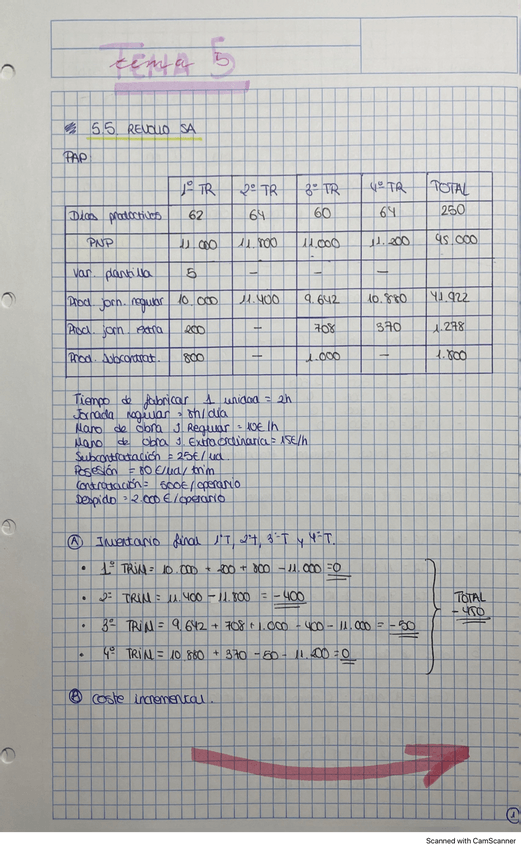 tema 5
TEMA 5
5.5. REVOLLO SA
PAP
1º TR 2º TR 3º TR 4º TR TOTAL
Días productivos 62 64 60 64 250
PNP 11.000 11.800 11.000 11.200 45.000
Var. plantilla 5 - - -
Prod. jorn. regular 10.000 11.400 9.642 10.880 41.922
Prod. jorn. extra 200 - 708 370 1.278
Prod. Subcontrat. 800 - 1.000 - 1.800
Tiempo de fabricar 1 unidad = 2h
Jornada regular = 8h/día
Mano de obra J. Regular = 10€/h
Mano de obra J. Extraordinaria = 15€/h
Subcontratación = 25€/ud.
Posesión = 80€/ud/trim
Contratación = 500€/operario
Despido = 2.000€/operario
A Inventario final 1ºT, 2ºT, 3ºT y 4ºT.
• 1º TRIM = 10.000 + 200 + 800 - 11.000 = 0
• 2º TRIM = 11.400 - 11.800 = -400
• 3º TRIM = 9.642 + 708 + 1.000 - 400 - 11.000 = -50
• 4º TRIM = 10.880 + 370 - 50 - 11.200 = 0
TOTAL
-450
B Coste incremental.
1
Scanned with CamScanner